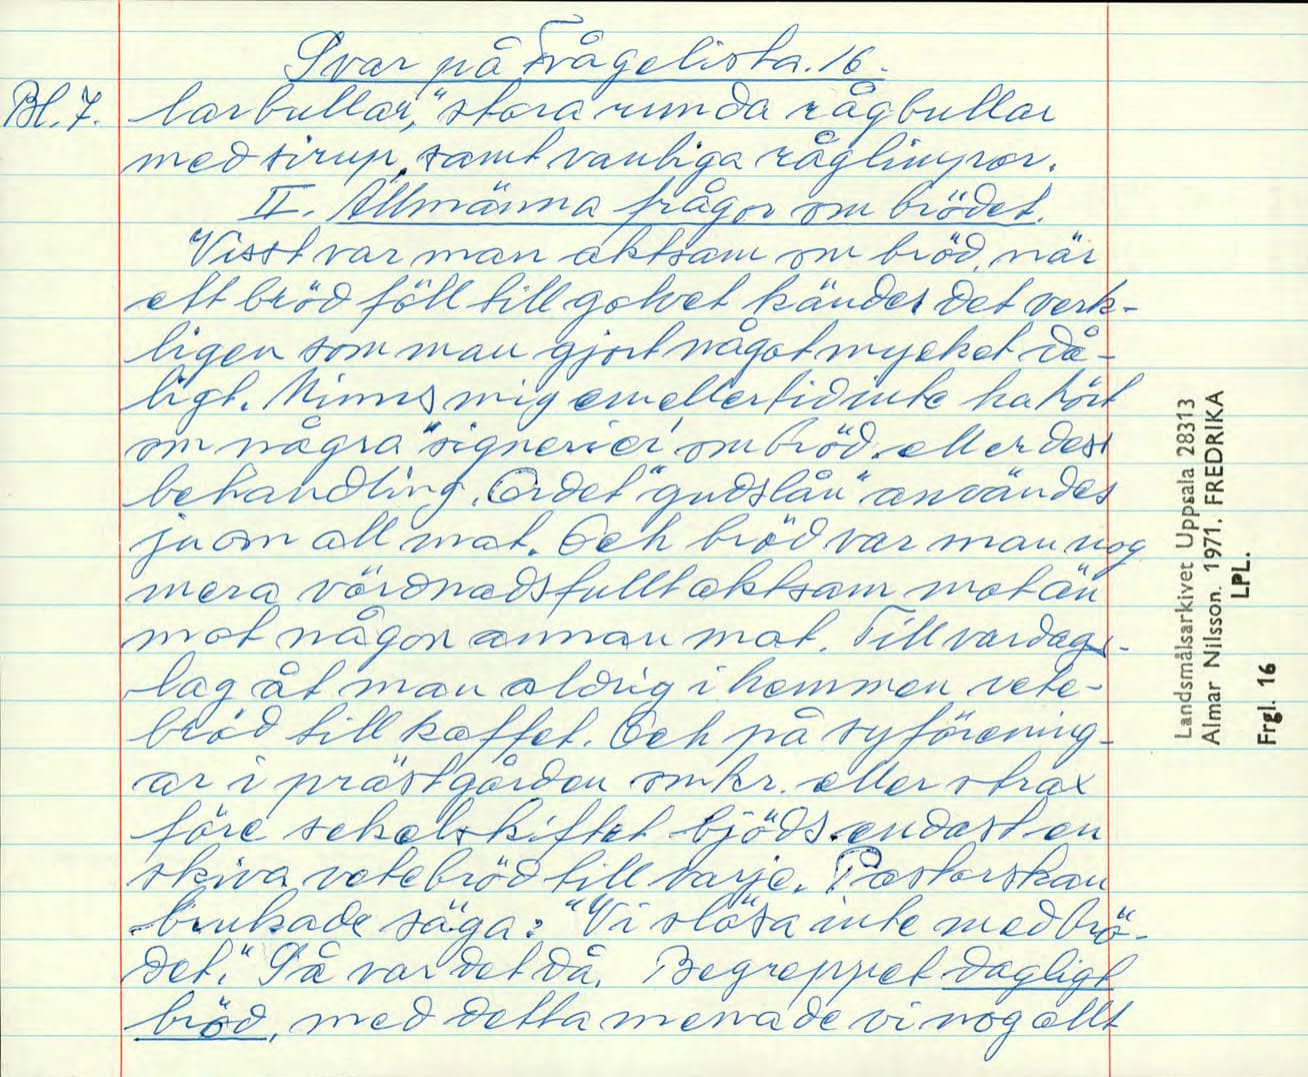 Svar på Frågelista. 16.
Bl. 7. larbullar," stora runda rågbullar
med sirup, samt vanliga råglimpor.
II. Allmänna frågor om brödet.
Visst var man aktsam om bröd, när
ett bröd föll till golvet kändes det verk-
ligen som man gjort något mycket då-
ligt. Minns mig emellertid inte ha hört
om några "signerier" om bröd. eller dess
behandling. Ordet "gudslån" användes
ju om all mat. Och bröd var man nog
mera vördnadsfullt aktsam mot än
mot någon annan mat. Till vardags-
lag åt man aldrig i hemmen vete-
bröd till kaffet. Och på syförening-
ar i prästgården omkr. eller strax
före sekelskiftet bjöds endast en
skiva vetebröd till varje. Pastorskan
brukade säga: "Vi slösa inte med brö-
det." Så var det då. Begreppet dagligt
bröd, med detta menade vi nog allt
Landsmålsarkivet Uppsala 28313
Almar Nilsson. 1971. FREDRIKA
LPL.
Frgl. 16